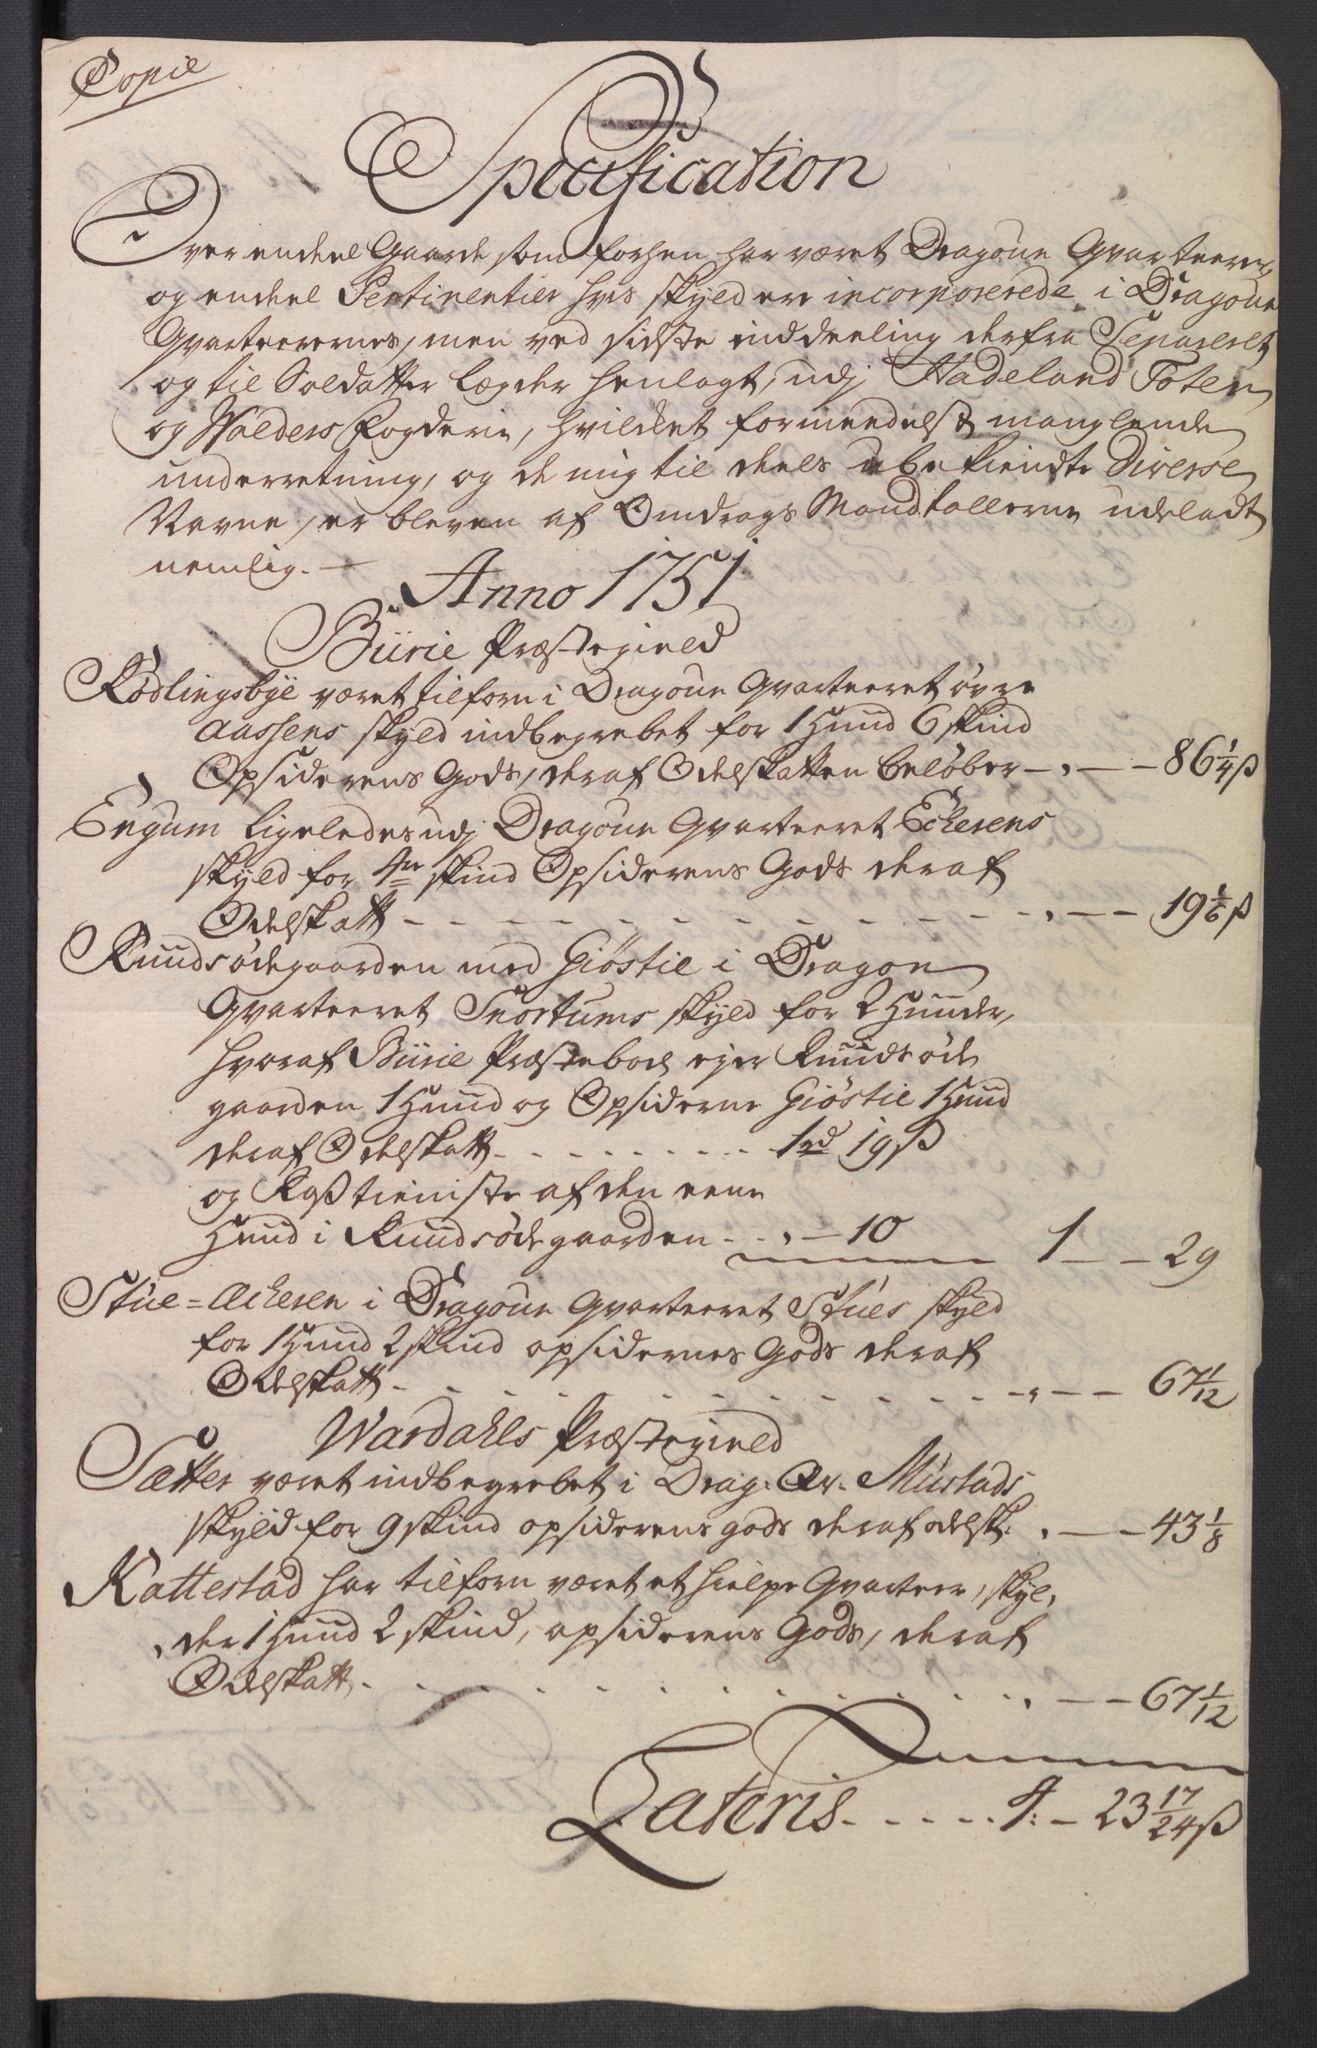 Copie
Specification
Over endeel Gaarde som forhen har været Dragoun Qvarteerer,
og endeel Pertinentier hvis skyld ere incorporerede i Dragoun
Qvarteerernes, men ved sidste inddeeling derfra Separeret
og til Soldatter Lægder henlagt, udj Hadeland Toten
og Walders Fogderie, hvilcket formeedelst manglende
underretning, og de mig til deels ubekiendte Diverse
Navne, er bleven af Omdrags Mandtallerne udeladt
nemlig.
Anno 1751
Biirie Præstegield
Rødlingsbye været tilforn i Dragoun Qvarteeret øvre
Aassens skyld indbegrebet for 1 Hund 6 skind
Opsiderens Gods, deraf Odelskatten beløber — 86 1/4 ß
Engum ligeledes udj Dragoun Qvarteeret Eckerens
skyld for 4re skind Opsiderens Gods deraf
Odelskatt — 19 1/6 ß
Knudsødegaarden med Giøstie i Dragon
Qvarteeret Snortums skyld for 2 Huuder,
hvoraf Biirie Præstebord ejer Knuds øde
gaarden 1 Huud og Opsiderne Giøstie 1 Huud
deraf Odelskatt 1 rd 19 ß
og Roßtieniste af den eene
Huud i Knudsødegaarden — 10 1 — 29
Stue=Ackeren i Dragoun Qvarteeret Stues skyld
for 1 Huud 2 skind opsidernes Gods deraf
Odelskatt — 67 1/12
Wardahls Præstegield
Sætter været indbegrebet i Drag: Qv. Mustads
skyld for 9 skind opsiderens gods deraf odelsk: — 43 1/8
Kattestad har tilforn været et hielpe Qvarteer, skyl,
der 1 Huud 2 skind, opsiderens Gods, deraf
Odelskatt — 67 1/12
Lateris 4: — 23 17/24 ß